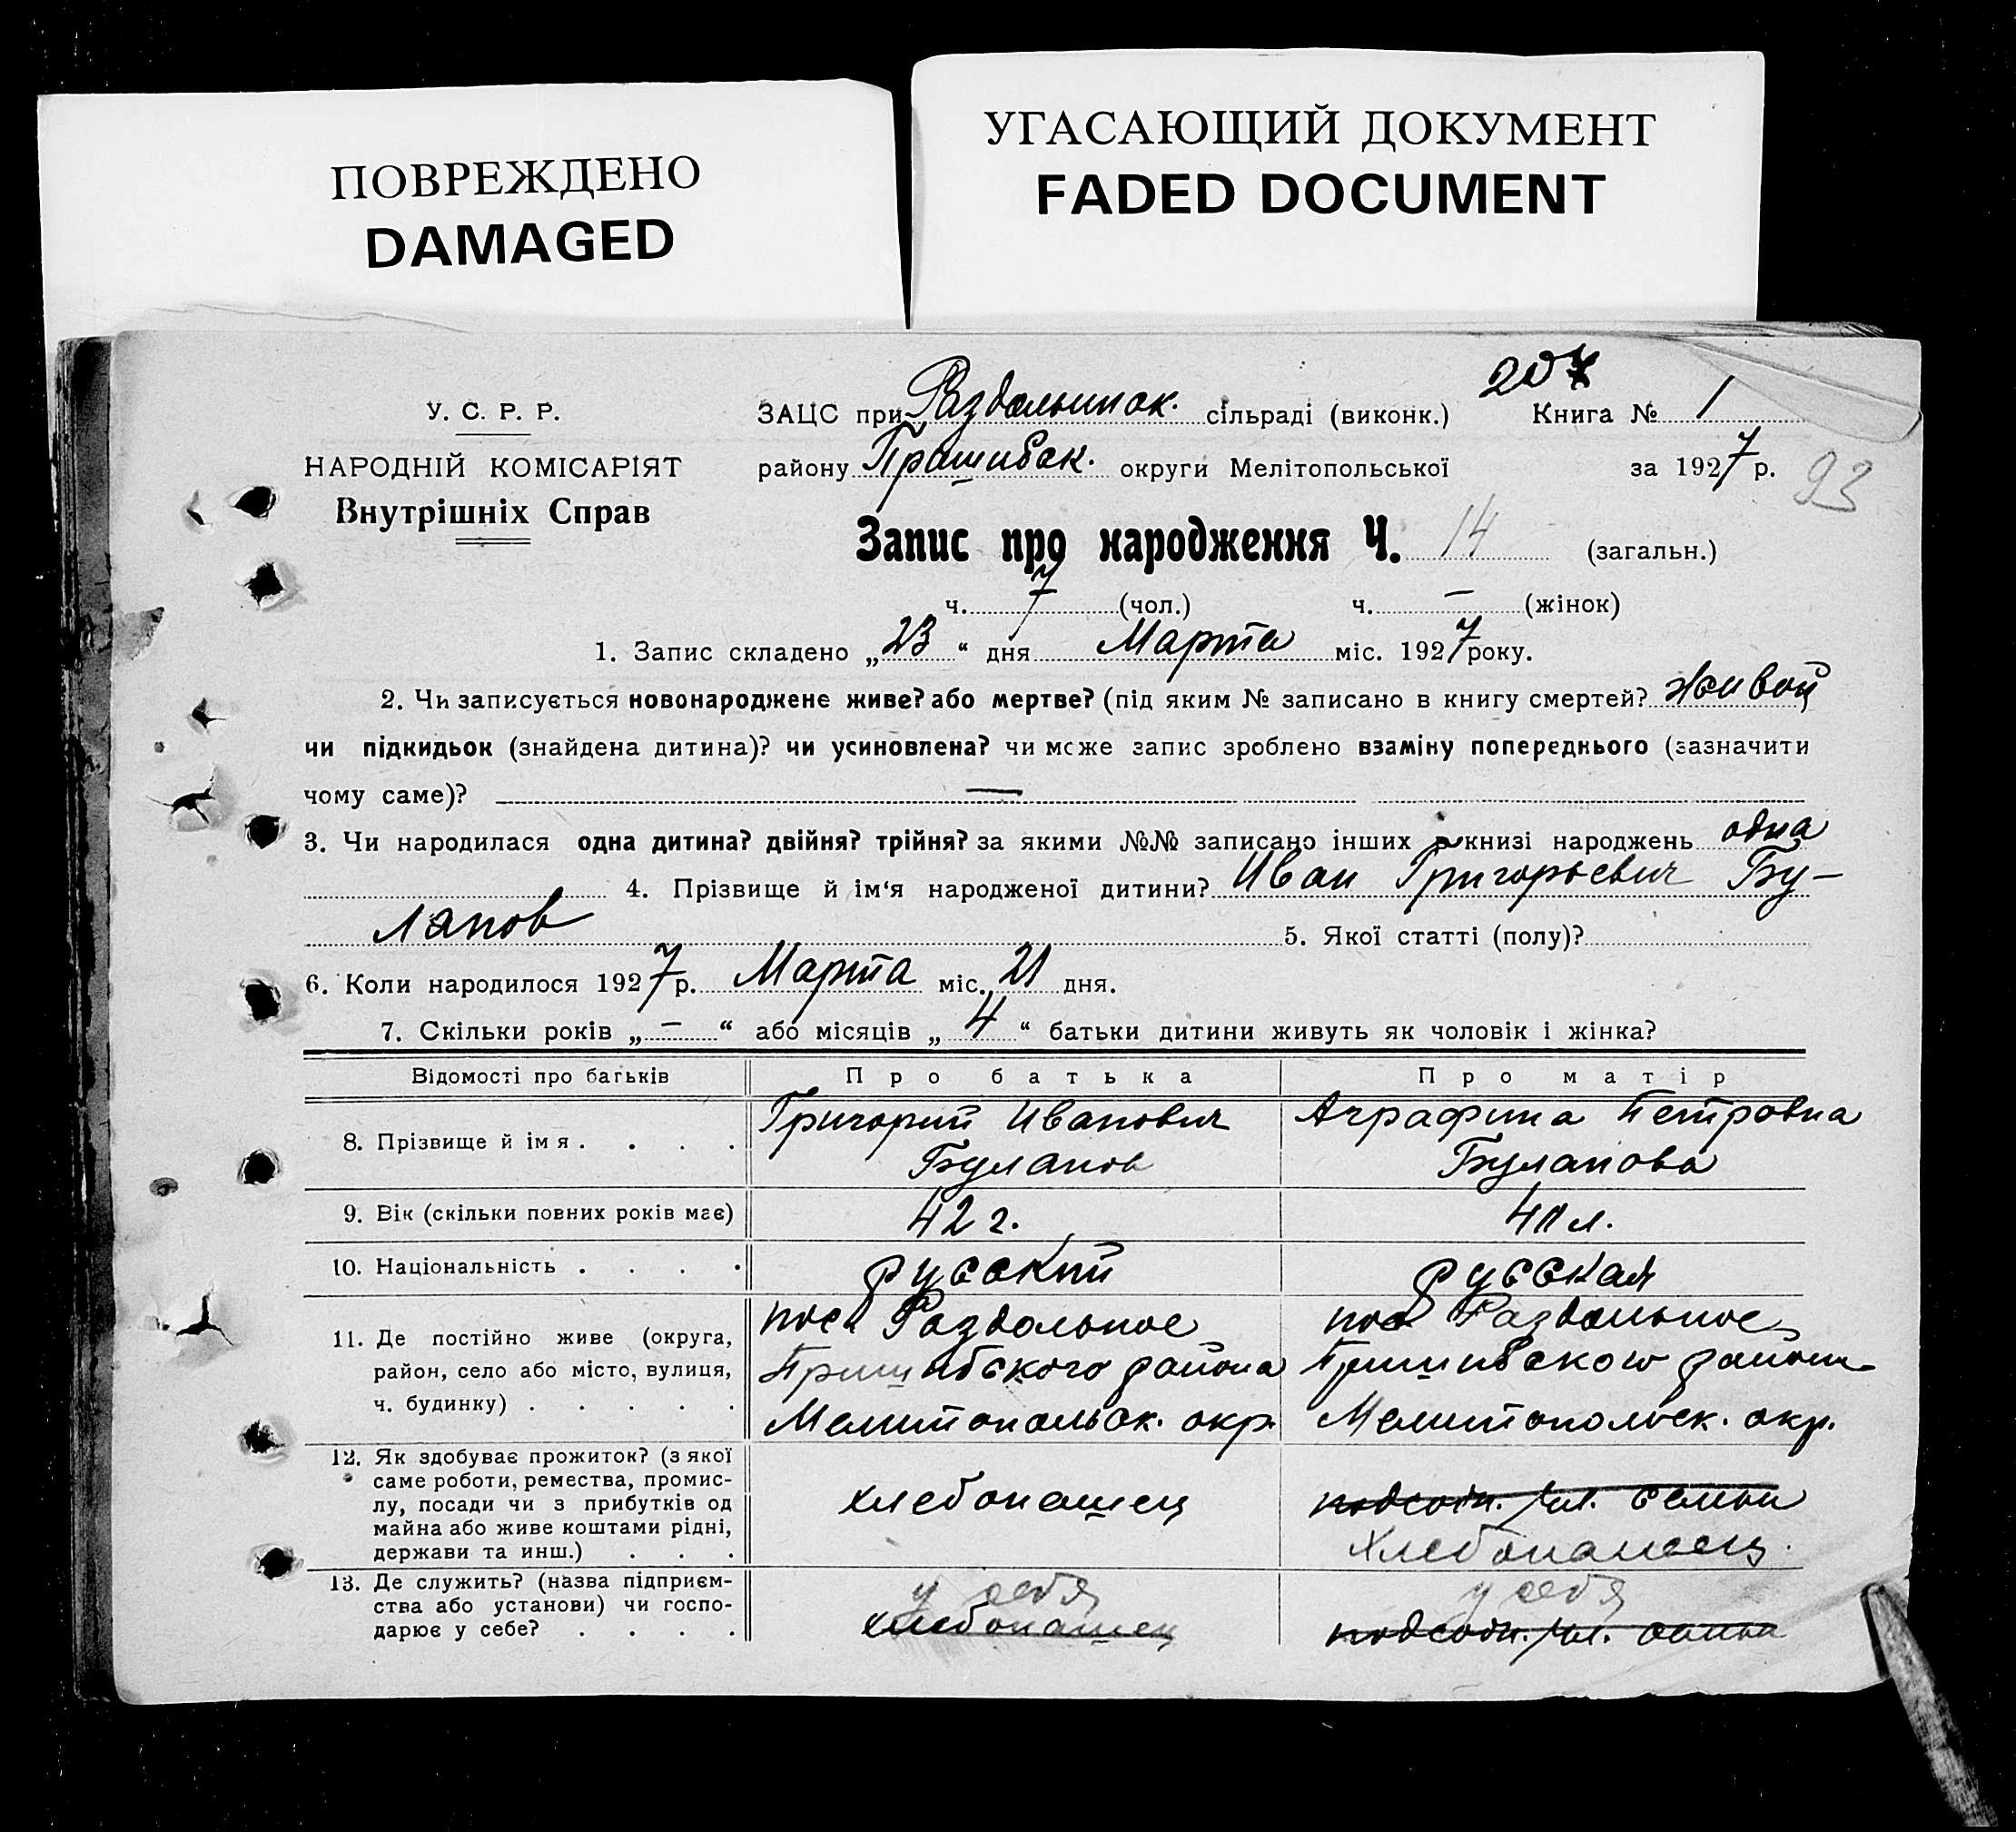 ПОВРЕЖДЕНО
DAMAGED
УГАСАЮЩИЙ ДОКУМЕНТ
FADED DOCUMENT
207
У. С. Р. Р.
НАРОДНІЙ КОМІСАРІЯТ
Внутрішніх Справ
ЗАЦС при Раздольинск. сільраді (виконк.) Книга № 1
району Пришибск. округи Мелітопольської за 1927 р. 93
Запис про народження Ч. 14 (загальн.)
ч. 7 (чол.) ч. — (жінок)
1. Запис складено „23“ дня Марта міс. 1927 року.
2. Чи записується новонароджене живе? або мертве? (під яким № записано в книгу смертей? живой
чи підкидьок (знайдена дитина)? чи усиновлена? чи може запис зроблено взаміну попереднього (зазначити
чому саме)? —
3. Чи народилася одна дитина? двійня? трійня? за якими №№ записано інших в книзі народжень одна
4. Прізвище й ім‘я народженої дитини? Иван Григорьевич Бу-
ланов 5. Якої статті (полу)?
6. Коли народилося 1927 р. Марта міс. 21 дня.
7. Скільки років „—“ або місяців „4“ батьки дитини живуть як чоловік і жінка?
Відомості про батьків Про батька Про матір
8. Прізвище й імя . . . . Григорий Иванович Аграфина Петровна
Буланов Буланова
9. Вік (скільки повних років має) 42 г. 40 л.
10. Національність . . . . русский русская
11. Де постійно живе (округа, район, село або місто, вулиця, ч. будинку) . . . . .
пос. Раздольное пос Раздольное
Пришибского района Пришибского района
Мелитопольск. окр. Мелитопольск. окр.
12. Як здобуває прожиток? (з якої
саме роботи, ремества, промис-
лу, посади чи з прибутків од
майна або живе коштами рідні,
держави та инш.) . . .
хлебопашец подсобн. чл. семьи
Хлебопашец.
13. Де служить? (назва підприєм-
ства або установи) чи госпо-
дарює у себе? . . . .
у себя у себя
хлебопашец подсобн. чл. семьи